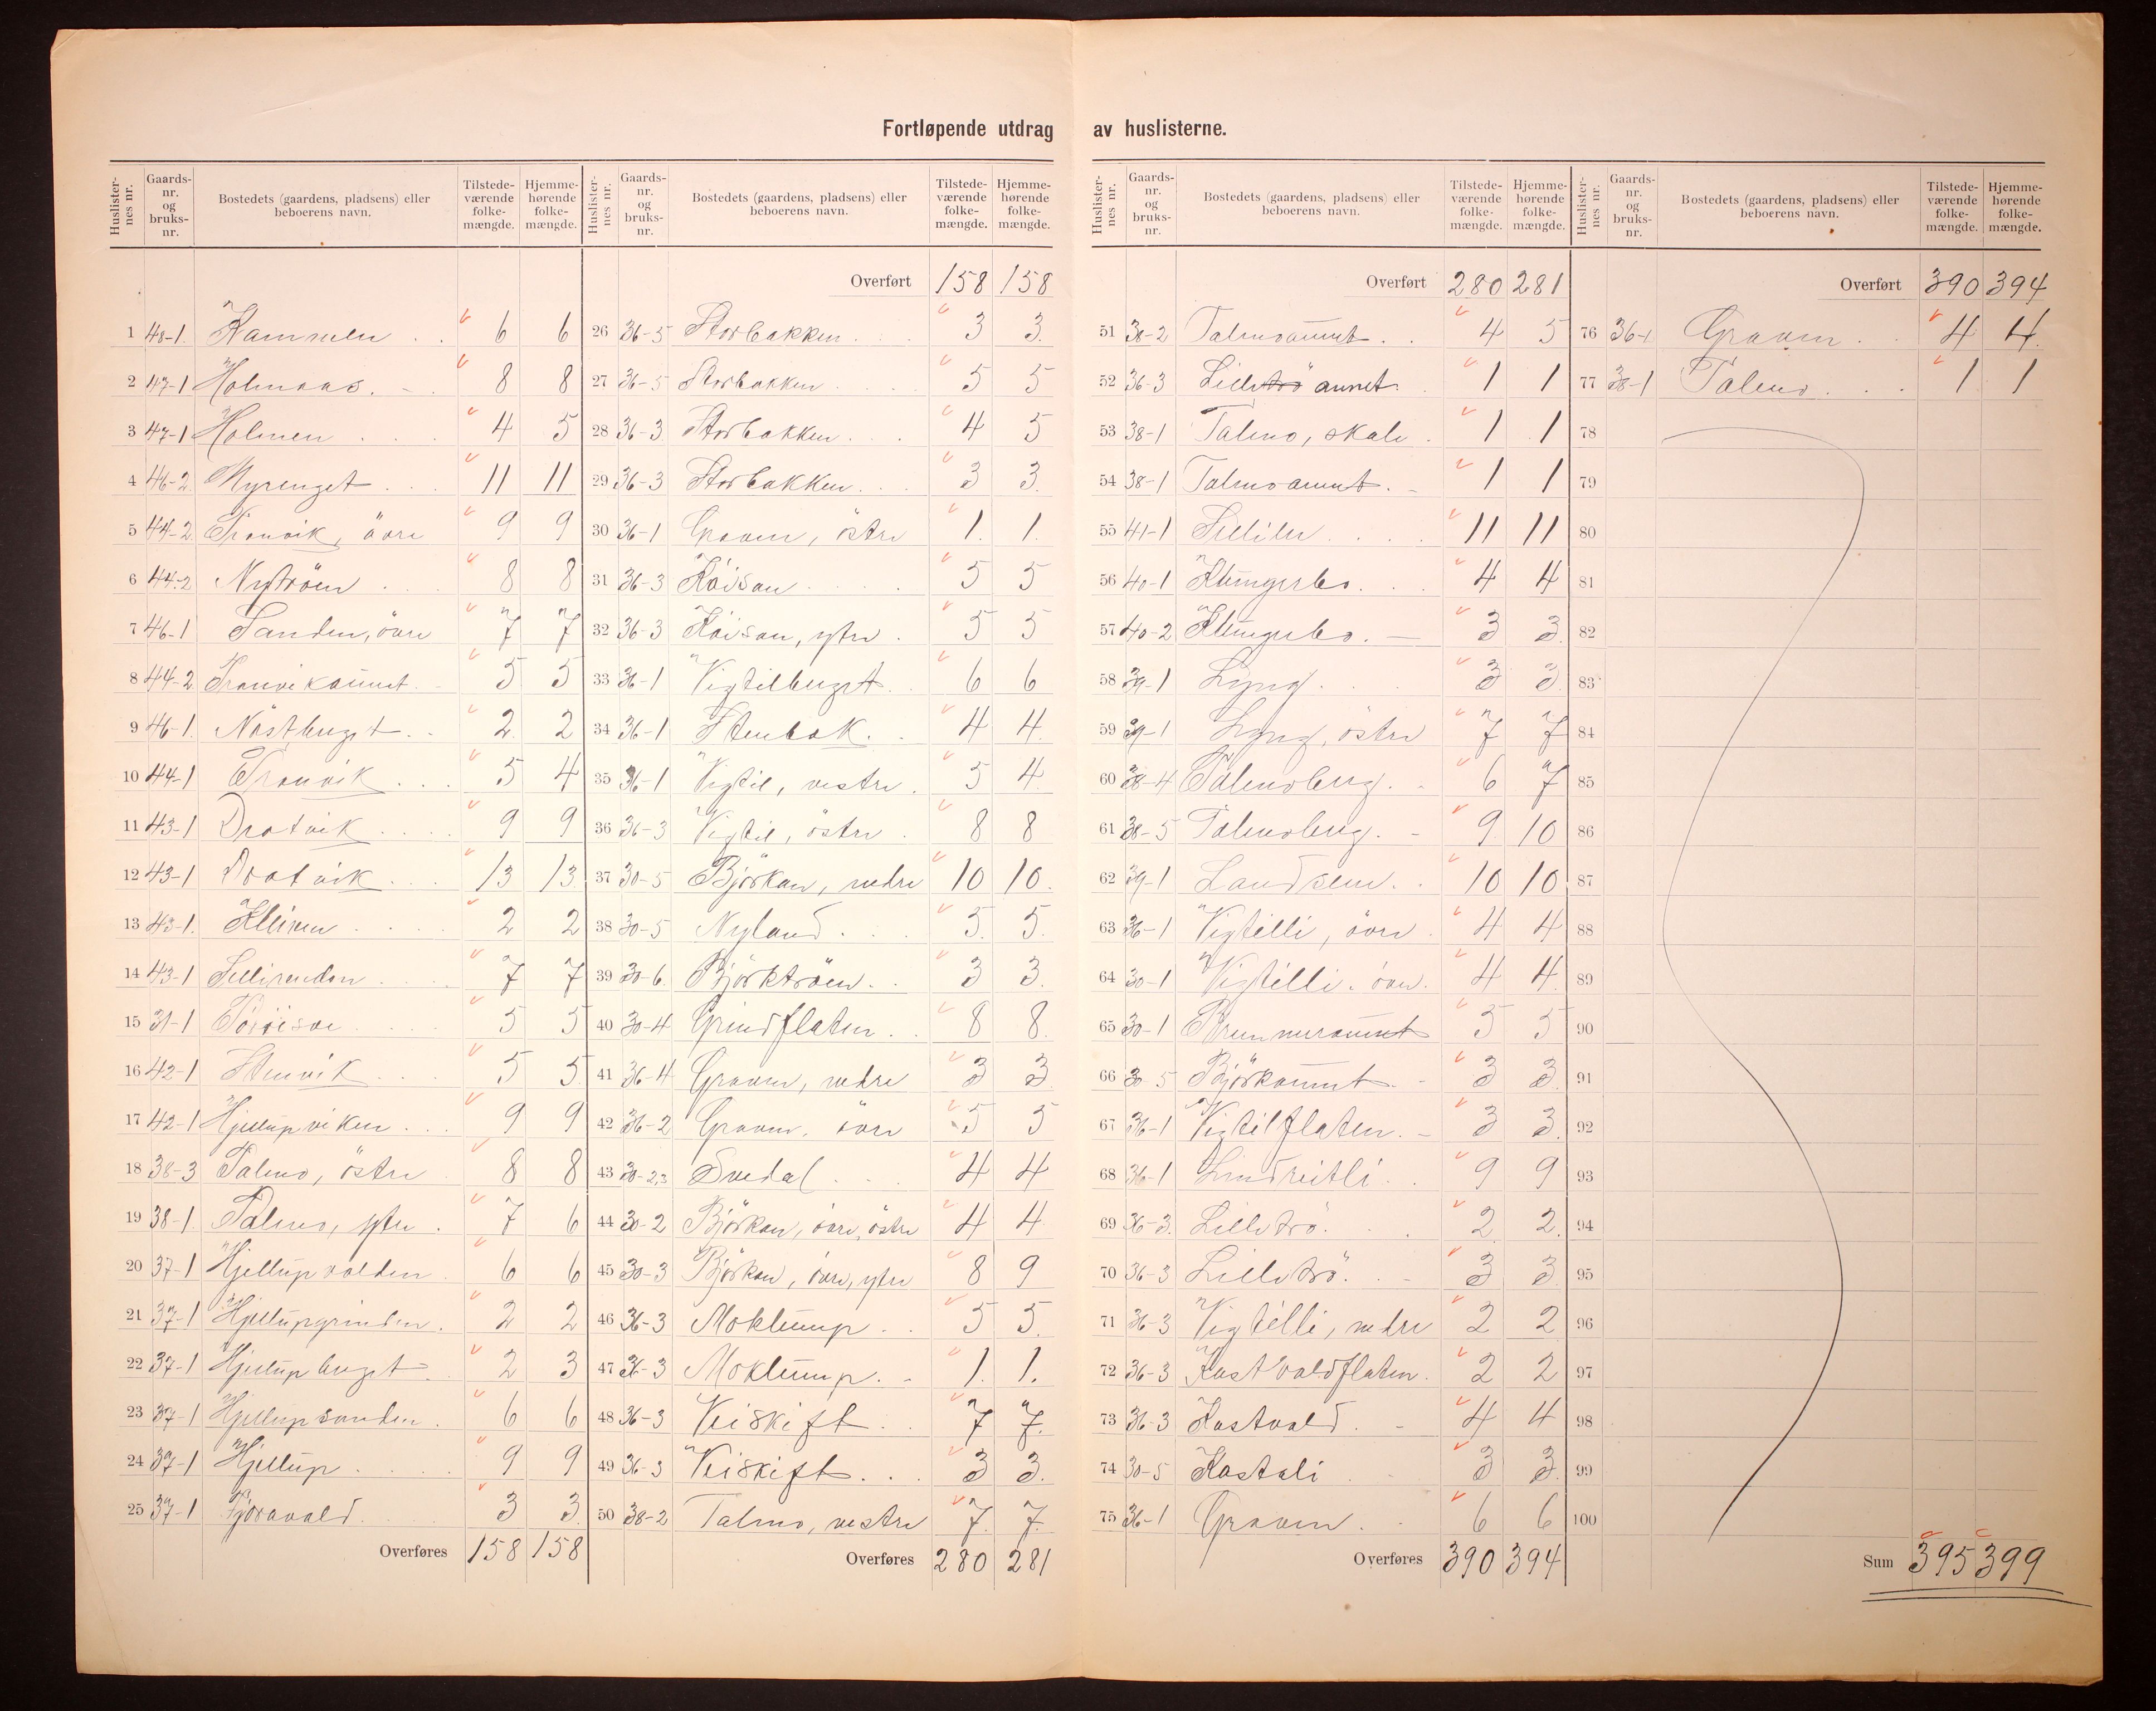 Fortløpende utdrag av huslisterne.
Huslisternes nr. Gaards-nr. og bruks-nr. Bostedets (gaardens, pladsens) eller beboerens navn. Tilstede-værende folke-mængde. Hjemme-hørende folke-mængde.
1 48-1. Kammelen . . 6 6
2 47-1 Holmaas. - 8 8
3 47-1 Holmen . . . 4 5
4 46-2 Myrenget . . . 11 11
5 44-2 Tronvik, övre 9 9
6 44-2 Nytröen . . 8 8
7 46-1 Sanden, övre 7 7
8 44-2 Tronvikaunet. 5 5
9 46-1. Nöstberget . - 2 2
10 44-1 Tronvik . . . 5 4
11 43-1 Dratvik . . . 9 9
12 43-1 Dratvik . . . 13 13
13 43-1. Kleiven . . . 2 2
14 43-1 Sellirenden . . . 7 7
15 31-1 . . . 5 5
16 42-1 Stenvik . . . 5 5
17 42-1 Hjellupviken . . . 9 9
18 38-3 Talmo, östre 8 8
19 38-1 Talmo, ytre . 7 6
20 37-1 Hjellupvolden 6 6
21 37-1 Hjellupgrinden . 2 2
22 37-1 Hjellupberget 2 3
23 37-1 Hjellupsanden . 6 6
24 37-1 Hjellup . . . . 9 9
25 37-1 Fjöravold . . . 3 3
Overføres 158 158
Huslisternes nr. Gaards-nr. og bruks-nr. Bostedets (gaardens, pladsens) eller beboerens navn. Tilstede-værende folke-mængde. Hjemme-hørende folke-mængde.
Overført 158 158
26 36-5 Storbakken . . . 3 3.
27 36-5 Storbakken . . . 5 5
28 36-3 Storbakken . . . 4 5
29 36-3 Storbakken . . . 3 3.
30 36-1 Graven, östre 1. 1.
31 36-3 Röisan . . . 5 5
32 36-3 Röisan, ytre . 5 5
33 36-1 Vigtilberget . 6 6
34 36-1 Stenbak. . 4 4
35 36-1 Vigtil, vestre . 5 4
36 36-3 Vigtil, östre . 8 8
37 30-5 Björkan, nedre 10 10.
38 30-5 Nyland . . . 5. 5.
39 30-6. Björktröen . . 3 3.
40 30-4 Grindflaten . . 8 8.
41 36-4 Graven, nedre 3 3
42 36-2 Graven, övre 5 5
43 30-2,3 Svedal . . . 4 4
44 30-2 Björkan, övre, östre 4 4
45 30-3 Björkan, övre, ytre 8 9
46 36-3 Moklump . . 5 5.
47 36-3 Moklump. - 1. 1.
48 36-3 Veiskift . . 7 7.
49 36-3 Veiskift . . . 3 3.
50 38-2 Talmo, vestre 7. 7.
Overføres 280 281
Huslisternes nr. Gaards-nr. og bruks-nr. Bostedets (gaardens, pladsens) eller beboerens navn. Tilstede-værende folke-mængde. Hjemme-hørende folke-mængde.
Overført 280 281
51 38-2 Talmoaunet . . 4 5
52 36-3 Lilletrö aunet. 1 1
53 38-1 Talmo, skole . 1 1
54 38-1 Talmoaunet . - 1 1
55 41-1 Sellilen . . . 11 11
56 40-1 Klungerbo . . . 4 4
57 40-2 Klungerbo. — 3 3.
58 39-1 Lyng . . . 3 3.
59 39-1 Lyng, östre 7 7
60 38-4 Talmoberg . . 6 7
61 38-5 Talmoberg. - 9. 10
62 39-1 Landsem. . 10 10
63 36-1 Vigtilli, övre . 4 4
64 30-1 Vigtilli, övre. 4 4
65 30-1 5 5
66 30-5 Björkaunet. - 3 3.
67 36-1 Vigtilflaten. - 3 3.
68 36-1 Lindseitli . . 9 9
69 36-3. Lilletrö. . . 2 2.
70 36-3 Lilletrö. . - 3 3.
71 36-3 Vigtilli, nedre 2 2
72 36-3 Kastvoldflaten. 2 2
73 36-3 Kastvold . - 4 4
74 30-5 Kastali . . 3 3.
75 36-1 Graven . . 6 6
Overføres 390 394
Huslisternes nr. Gaards-nr. og bruks-nr. Bostedets (gaardens, pladsens) eller beboerens navn. Tilstede-værende folke-mængde. Hjemme-hørende folke-mængde.
Overført 390 394
76 36-1 Graven . . 4 4.
77 38-1 Talmo . . . 1 1
78
79
80
81
82
83
84
85
86
87
88
89
90
91
92
93
94
95
96
97
98
99
100
Sum 395 399